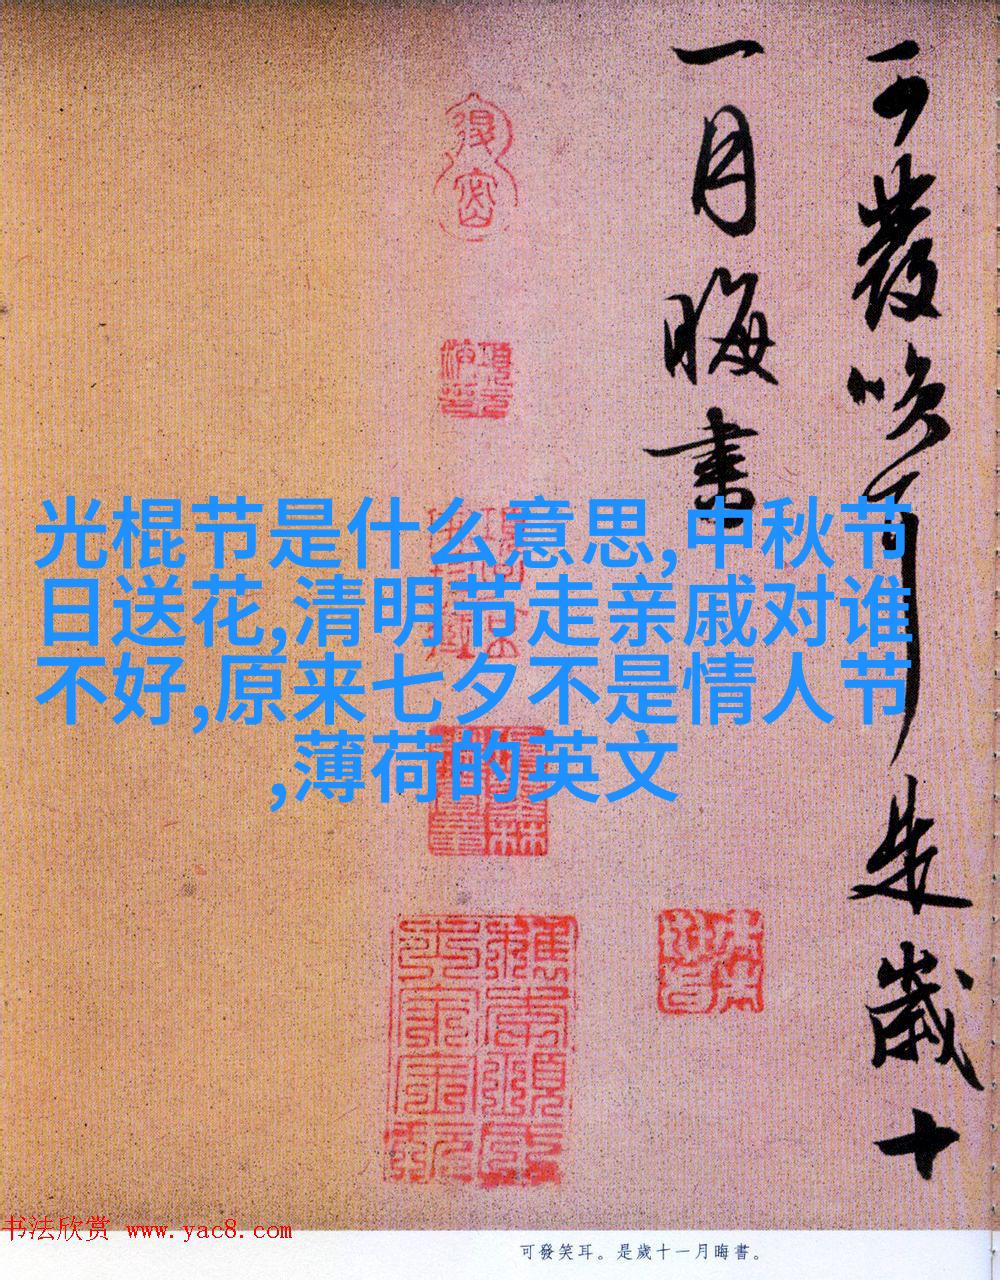 可發笑耳是歲十
一月晦書
光棍节是什么意思,中秋节
日送花,清明节走亲戚对谁
不好,原来七夕不是情人节
,薄荷的英文
书法欣赏 www.yac8.com
可發笑耳。是歲十一月晦書。